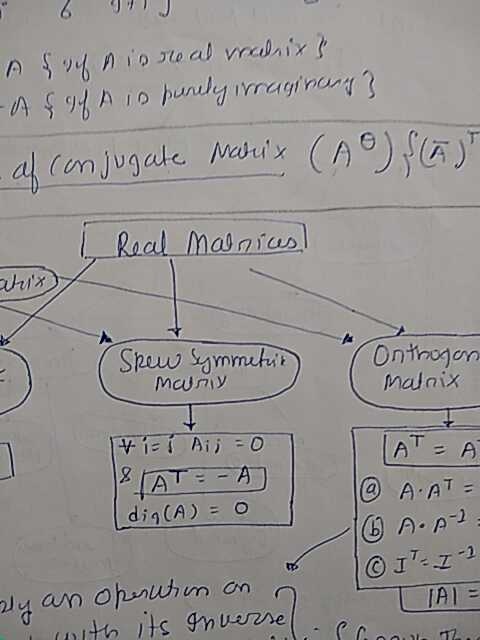 A {if A is real matrix}
-A {if A is purely imaginary}
of Conjugate Matrix (A^θ) {(Ā)^T
Real Matrices
atrix
Skew Symmetric
Matrix
Orthogon
Matrix
∀ i=j Aij = 0
& A^T = -A
dig(A) = 0
A^T = A
(a) A.A^T =
(b) A.A^-1 =
(c) I^T = I^-1
|A| =
ly an operation on
with its Inverse